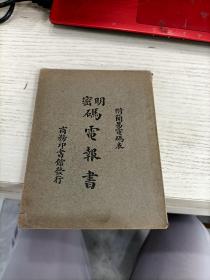 附簡易電碼表
明密碼電報書
商務印書館發行